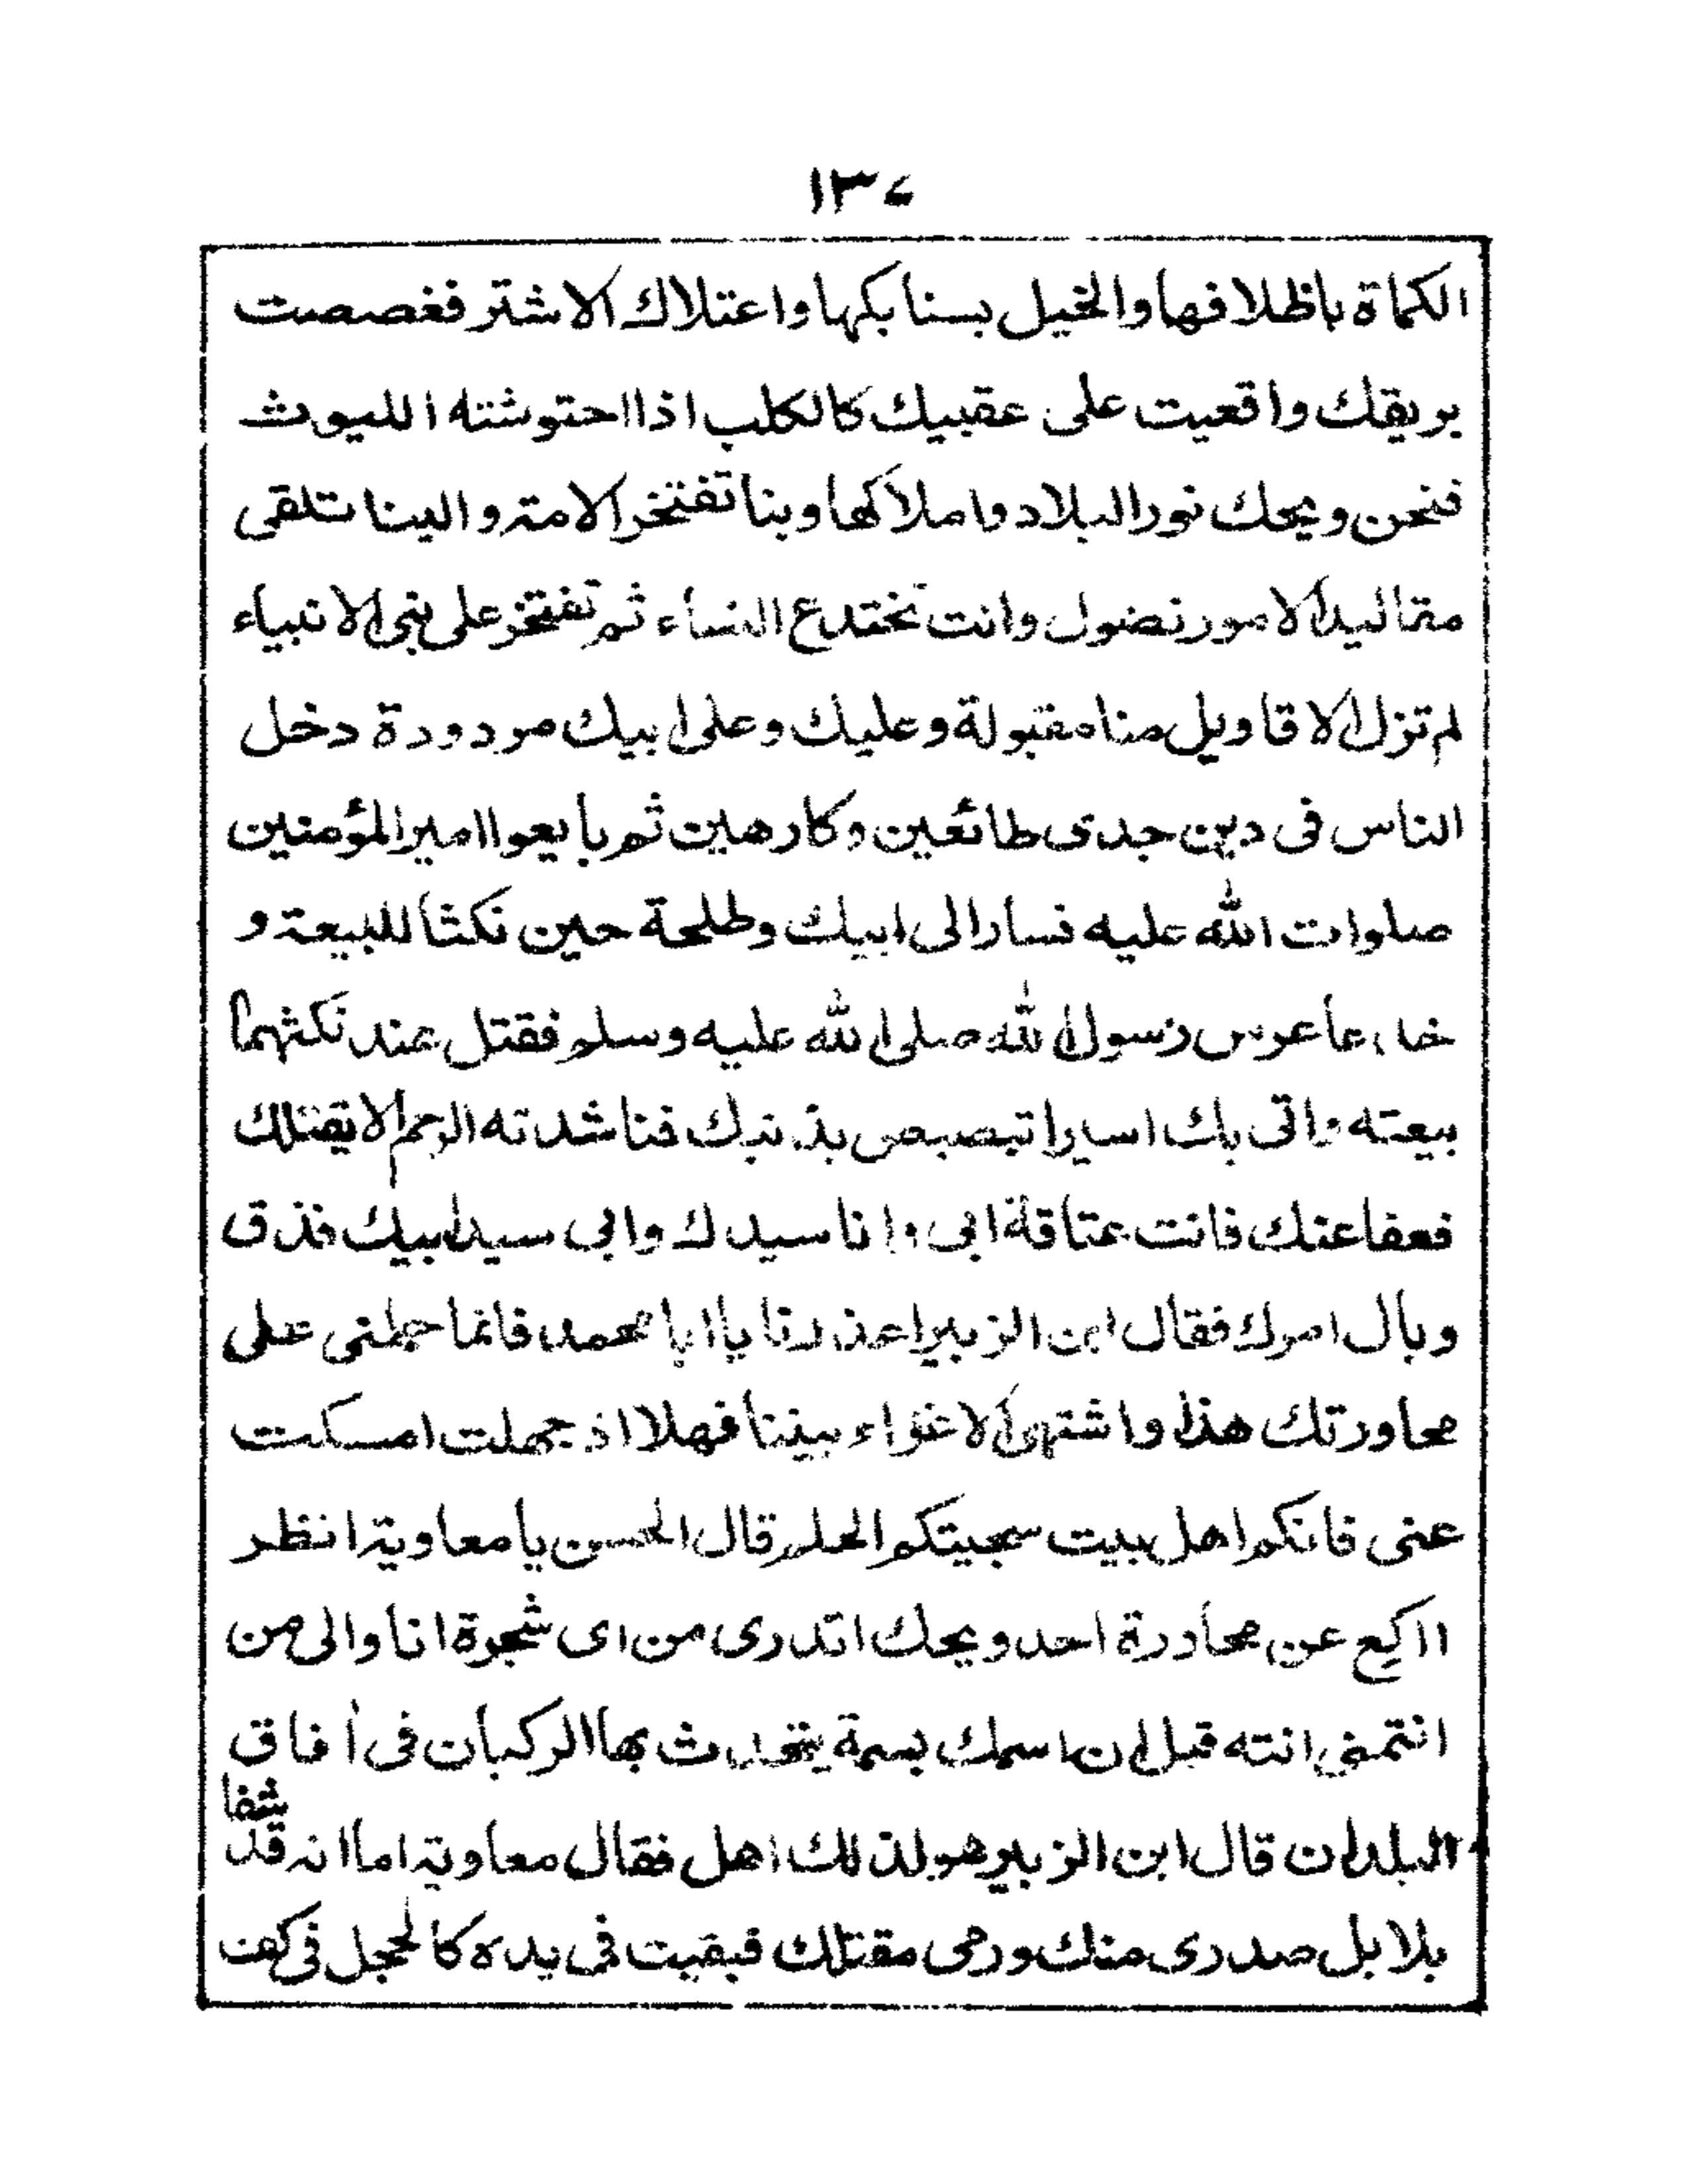 ١٣٤
الكماة باظلافها والخيل بسنابكها واعتلاك الاشتر فغصصت
بريقك واقعيت على عقبيك كالكلب اذا احتوشته الليوث
فنحن ويحك نور البلاد واملاكها وبنا تفتخر الامة والينا تلقى
مقاليد الامور نصول وانت تختدع النساء ثم تفتخر على بنى الانبياء
لم تزل الاقاويل منا مقبولة وعليك وعلى ابيك مردودة دخل
الناس فى دين جدى طائعين وكارهين ثم بايعوا امير المؤمنين
صلوات الله عليه فسار الى ابيك وطلحة حين نكثا للبيعة و
خادعا عرس رسول الله صلى الله عليه وسلم فقتل عند نكثهما
بيعته واتى بك اسيرا تبصبص بذنبك فناشدته الرحم الا يقتلك
فعفا عنك فانت عتاقة ابى وانا سيدك وابى سيد ابيك فذق
وبال امرك فقال ابن الزبير اعذرنا يا ابا محمد فانما حملنى على
محاورتك هذا واشتهى الاغراء بيننا فهلا اذ جهلت امسكت
عنى فانكم اهل بيت سجيتكم الحلم قال الحسن يا معاوية انظر
ااكع عن محاورة احد ويحك اتدرى من اى شجرة انا والى من
انتمى انته قبل ان اسمك بسمة يتحدث بها الركبان فى آفاق
البلدان قال ابن الزبير هو لذلك اهل فقال معاوية اما انه قد شفا
بلابل صدرى منك ورمى مقتلك فبقيت فى يده كالحجل فى كف